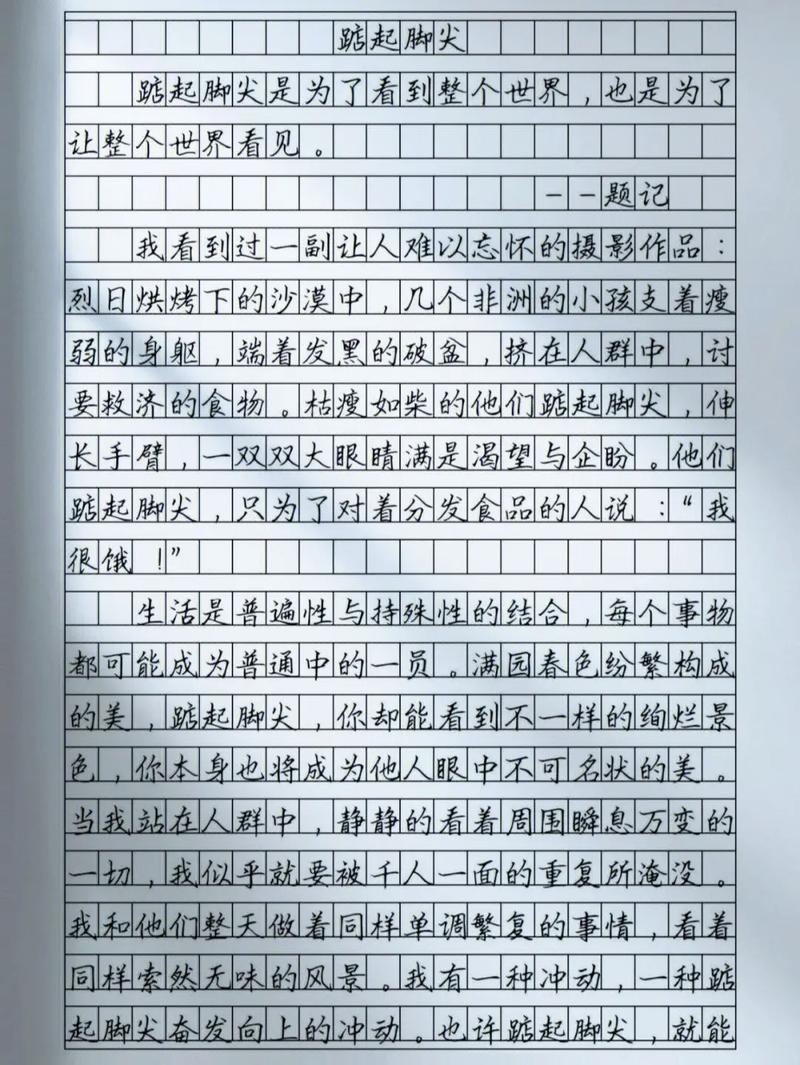 踮起脚尖
踮起脚尖是为了看到整个世界，也是为了
让整个世界看见。
--题记
我看到过一副让人难以忘怀的摄影作品：
烈日烘烤下的沙漠中，几个非洲的小孩支着瘦
弱的身躯，端着发黑的破盆，挤在人群中，讨
要救济的食物。枯瘦如柴的他们踮起脚尖，伸
长手臂，一双双大眼睛满是渴望与企盼。他们
踮起脚尖，只为了对着分发食品的人说：“我
很饿！”
生活是普遍性与特殊性的结合，每个事物
都可能成为普通中的一员。满园春色纷繁构成
的美，踮起脚尖，你却能看到不一样的绚烂景
色，你本身也将成为他人眼中不可名状的美。
当我站在人群中，静静的看着周围瞬息万变的
一切，我似乎就要被千人一面的重复所淹没。
我和他们整天做着同样单调繁复的事情，看着
同样索然无味的风景。我有一种冲动，一种踮
起脚尖奋发向上的冲动。也许踮起脚尖，就能